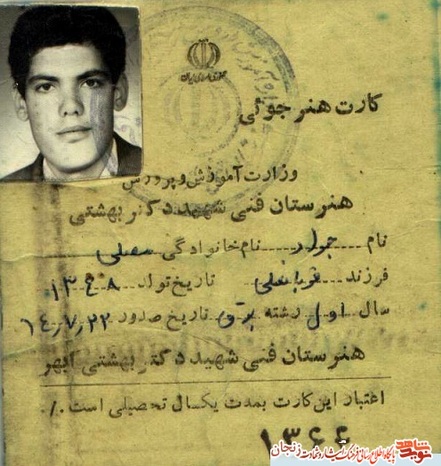 جمهوری اسلامی ایران
کارت هنرجوئی
وزارت آموزش و پرورش
هنرستان فنی شهید دکتر بهشتی
نام جواد نام خانوادگی
فرزند قربانعلی تاریخ تولد ۱۳۴۸
سال اول رشته برق تاریخ صدور ۶۴٫۷٫۲۲
هنرستان فنی شهید دکتر بهشتی ابهر
اعتبار این کارت بمدت یکسال تحصیلی است ٪
۱۳۶۴
نوید شاهد پایگاه اطلاع رسانی فرهنگ ایثار و شهادت زنجان